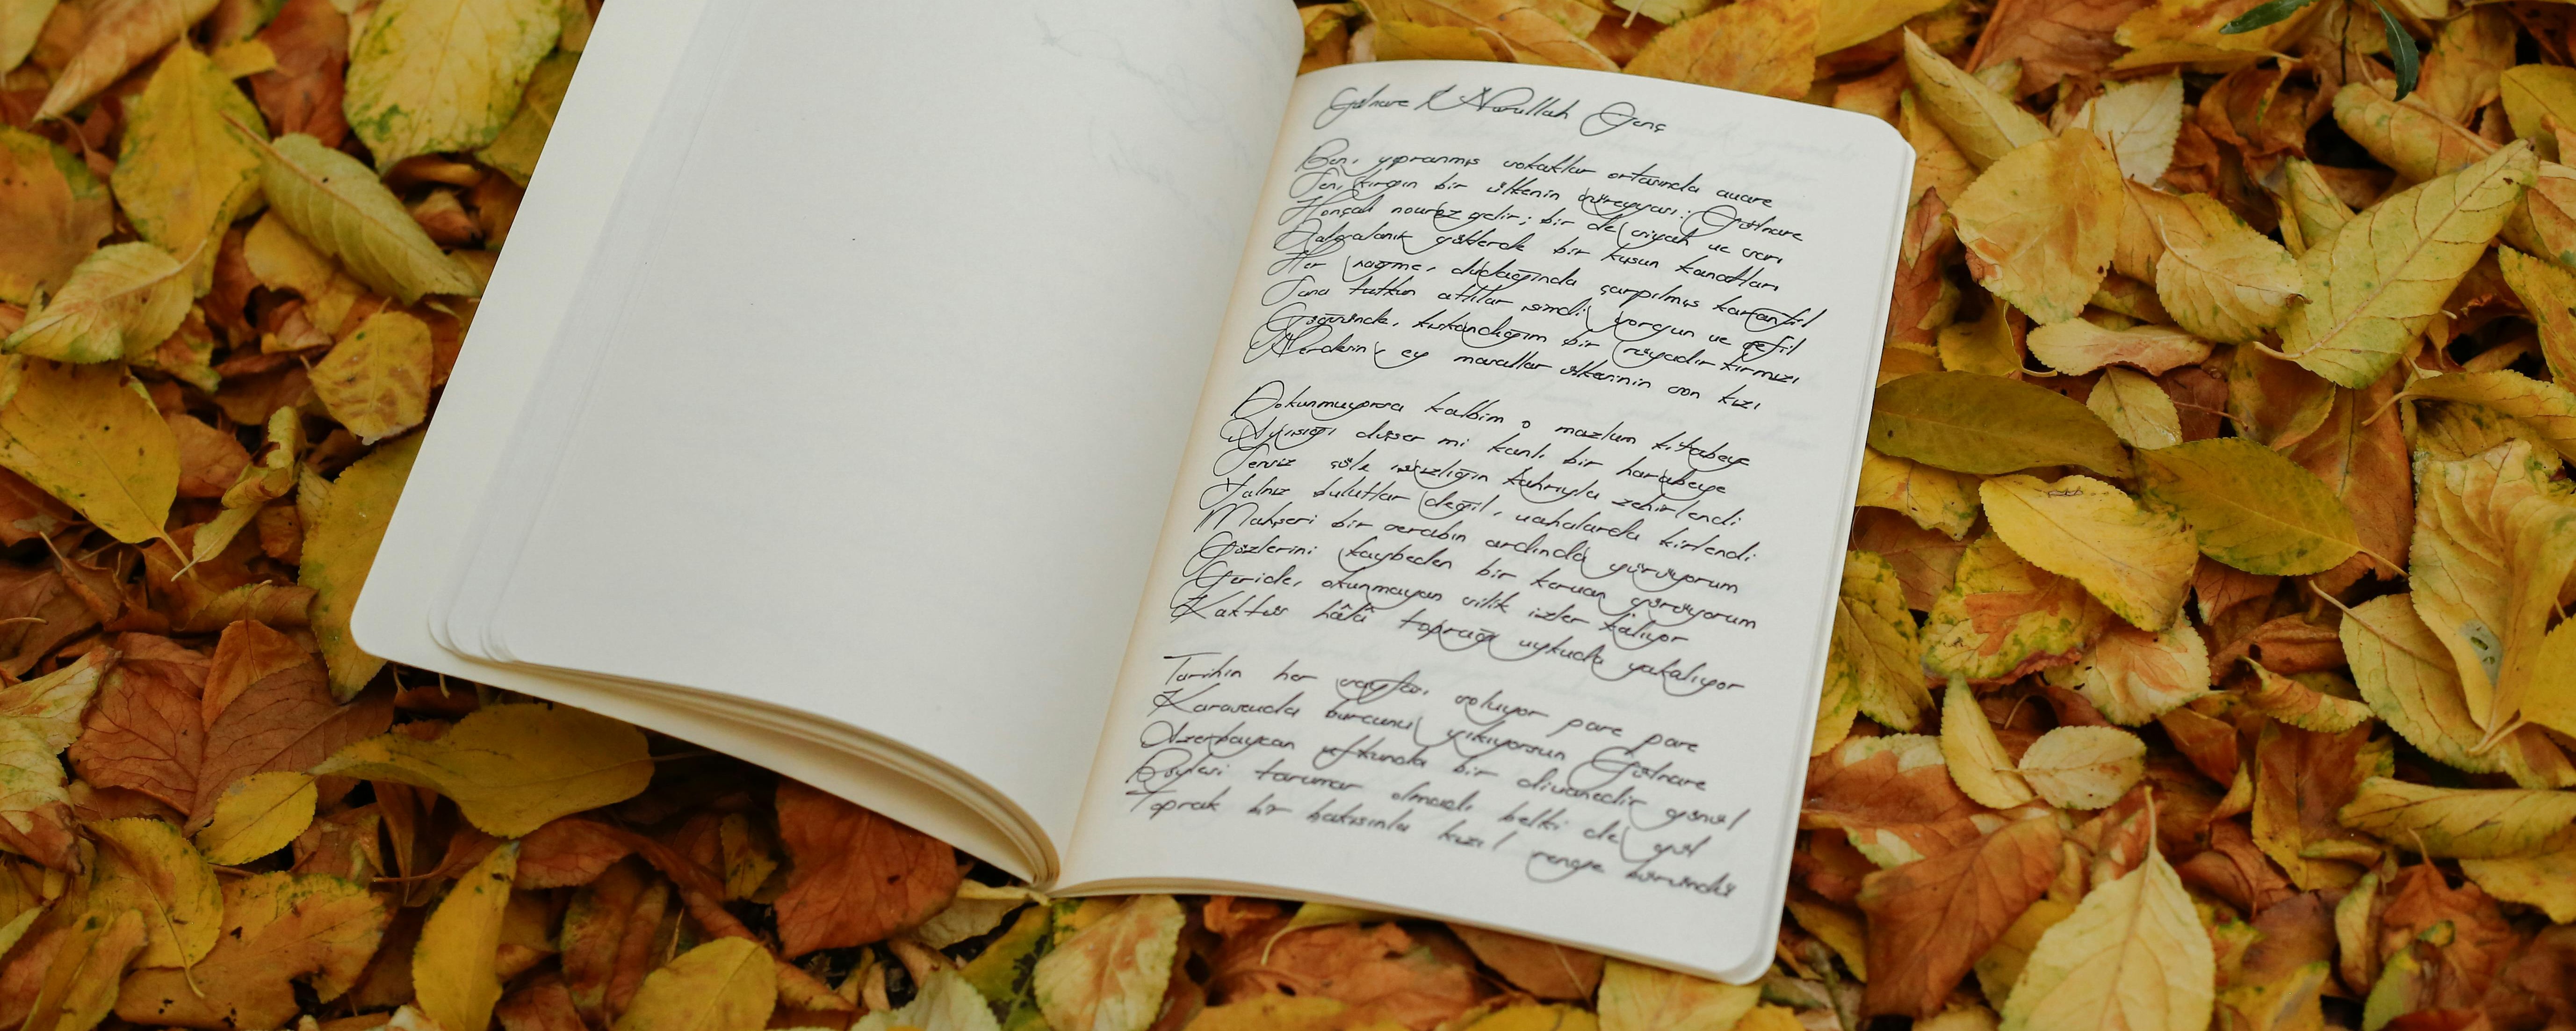 Gülnare / Nurullah Genç
Ben, yıpranmış sokaklar ortasında avare
Sen, kırgın bir ülkenin süreyyası; Gülnare
Honçalı novruz gelir; bir de siyah ve sarı
Dalgalanır göklerde bir kuşun kanatları
Her nağme, dudağında çarpılmış karanfil
Sana tutkun atlılar şimdi yorgun ve sefil
Göğsünde, kıskandığım bir rüyadır kırmızı
Nerdesin, ey masallar ülkesinin son kızı
Dokunmuyorsa kalbim o mazlum kitabeye
Ay ışığı düşer mi kanlı bir harabeye
Sensiz çöle ıssızlığın kahrıyla zehirlendi
Yalnız bulutlar değil, vahalarda kirlendi
Mahşeri bir serabın ardında yürüyorum
Gözlerini kaybeden bir kervan görüyorum
Geride, okunmayan silik izler kalıyor
Kaktüs hâlâ toprağı uykuda yakalıyor
Tarihin her sayfası soluyor pare pare
Karasevda burcunu yıkıyorsun Gülnare
Azerbaycan ufkunda bir divanedir gönül
Böylesi tarumar olmadı belki de gül
Toprak bir bakışınla kızıl renge büründü